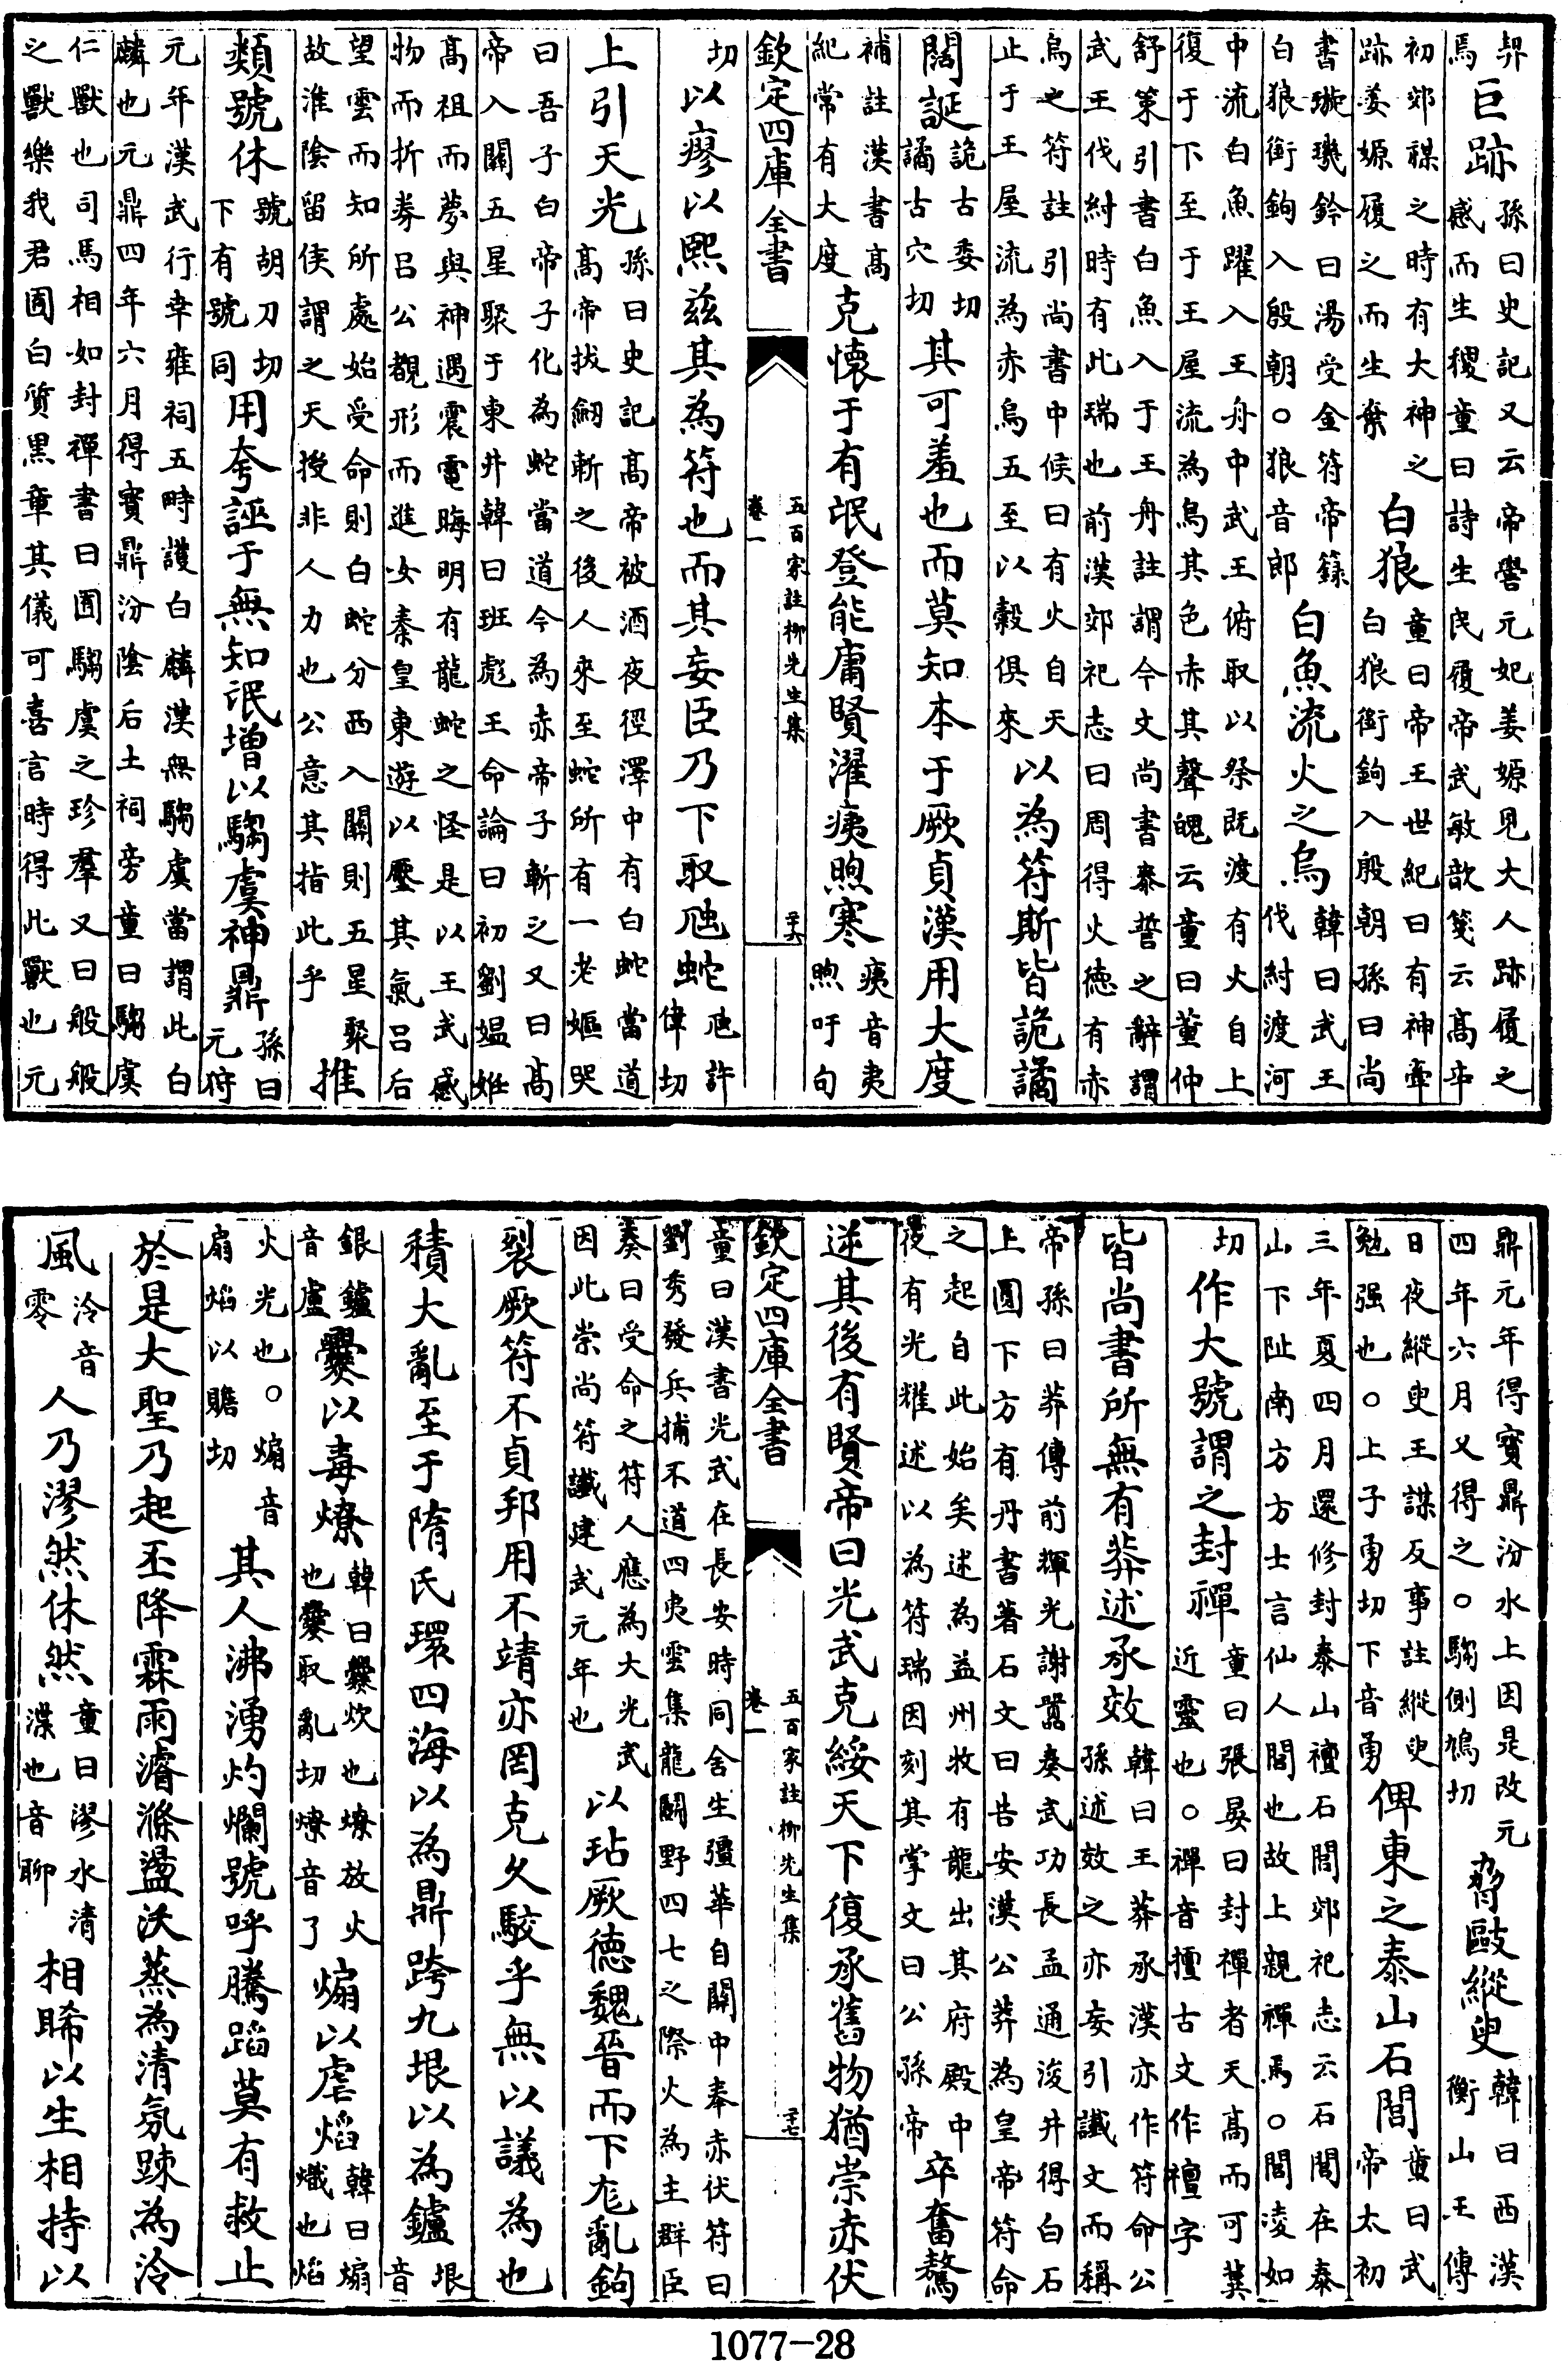 契焉巨跡孫曰史記又云帝嚳元妃姜嫄見大人跡履之感而生稷童曰詩生民履帝武敏歆箋云高辛
初郊禖之時有大神之跡姜嫄履之而生棄白狼童曰帝王世紀曰有神牽白狼銜鉤入殷朝孫曰尚
書璇璣鈐曰湯受金符帝籙白狼銜鉤入殷朝○狼音郎白魚流火之烏韓曰武王伐紂渡河
中流白魚躍入王舟中武王俯取以祭既渡有火自上復于下至于王屋流為烏其色赤其聲魄云童曰董仲
舒策引書白魚入于王舟註謂今文尚書泰誓之辭謂武王伐紂時有此瑞也前漢郊祀志曰周得火德有赤
烏之符註引尚書中候曰有火自天止于王屋流為赤烏五至以穀俱來以為符斯皆詭譎
闊誕詭古委切譎古穴切其可羞也而莫知本于厥貞漢用大度
補註漢書高紀常有大度克懷于有氓登能庸賢濯痍煦寒痍音夷煦吁句
欽定四庫全書 五百家註柳先生集 卷一 二十六
切以瘳以熙兹其為符也而其妄臣乃下取虺蛇虺許偉切
上引天光孫曰史記高帝被酒夜徑澤中有白蛇當道高帝拔劒斬之後人來至蛇所有一老嫗哭
曰吾子白帝子化為蛇當道今為赤帝子斬之又曰高帝入關五星聚于東井韓曰班彪王命論曰初劉媼姙
高祖而夢與神遇震電晦明有龍蛇之怪是以王武感物而折券呂公覩形而進女秦皇東遊以壓其氣呂后
望雲而知所處始受命則白蛇分西入關則五星聚故淮陰留侯謂之天授非人力也公意其指此乎推
類號休號胡刀切下有號同用夸誣于無知氓增以騶虞神鼎孫曰元狩
元年漢武行幸雍祠五畤護白麟漢無騶虞當謂此白麟也元鼎四年六月得寳鼎汾陰后土祠旁童曰騶虞
仁獸也司馬相如封禪書曰囿騶虞之珍羣又曰般般之獸樂我君囿白質黑章其儀可喜言時得此獸也元
鼎元年得寳鼎汾水上因是改元四年六月又得之○騶側鳩切脅敺縱臾韓曰西漢衡山王傳
日夜縱臾王謀反事註縱臾勉强也○上子勇切下音勇俾東之泰山石閭童曰武帝太初
三年夏四月還修封泰山禮石閭郊祀志云石閭在泰山下阯南方方士言仙人閭也故上親禪焉○閭凌如
切作大號謂之封禪童曰張晏曰封禪者天高而可冀近靈也○禪音擅古文作襢字
皆尚書所無有莽述承效韓曰王莽承漢亦作符命公孫述效之亦妄引讖文而稱
帝孫曰莽傳前輝光謝囂奏武功長孟通浚井得白石上圓下方有丹書著石文曰告安漢公莽為皇帝符命
之起自此始矣述為益州牧有龍出其府殿中夜有光耀述以為符瑞因刻其掌文曰公孫帝卒奮驁
逆其後有賢帝曰光武克綏天下復承舊物猶崇赤伏
欽定四庫全書 五百家註柳先生集 卷一 二十七
童曰漢書光武在長安時同舍生彊華自關中奉赤伏符曰劉秀發兵捕不道四夷雲集龍鬭野四七之際火為主群臣
奏曰受命之符人應為大光武因此崇尚符讖建武元年也以玷厥德魏晉而下尨亂鉤
裂厥符不貞邦用不靖亦罔克久駮乎無以議為也
積大亂至于隋氏環四海以為鼎跨九垠以為鑪垠音
銀鑪音盧爨以毒燎韓曰爨炊也燎放火也爨取亂切燎音了煽以虐焰韓曰煽熾也焰
火光也○煽音扇焰以贍切其人沸湧灼爛號呼騰蹈莫有救止
於是大聖乃起丕降霖雨濬滌盪沃蒸為清氛疎為泠
風泠音零人乃漻然休然童曰漻水清渫也音聊相睎以生相持以
1077-28